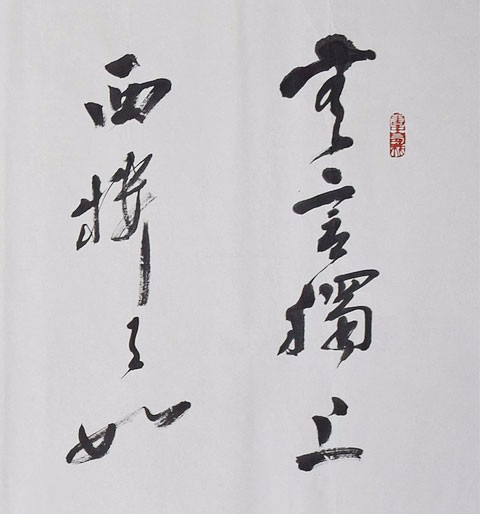 無言獨上
西樓月如